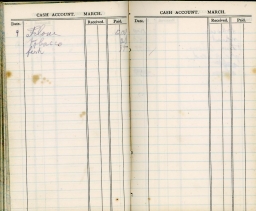 CASH ACCOUNT. MARCH.
Date. Received. Paid.
9 Flour
Tobacco
CASH ACCOUNT. MARCH.
Date. Received. Paid.